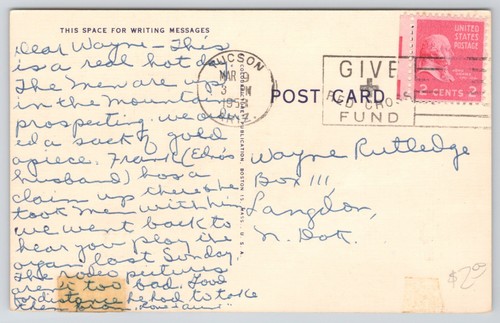 THIS SPACE FOR WRITING MESSAGES
Dear Wayne - This
is a real hot day
The men are up
in the mountains
prospecting. we order
ed a sack of gold
apiece. Frank (Edna's
husband) has a
claim up there & he
took men with him
we went back to
hear you play the
organ last Sunday.
The rodeo pictures
are too bad. Good
distance he had to take
them from.
TUCSON
MAR 9
3 PM
1953
ARIZ.
GIVE
RED CROSS
FUND
UNITED STATES
POSTAGE
2 CENTS 2
POST CARD
BOSTON 15, MASS., U.S.A.
Wayne Rutledge
Box 111,
Langdon,
N. Dak.
$2.00